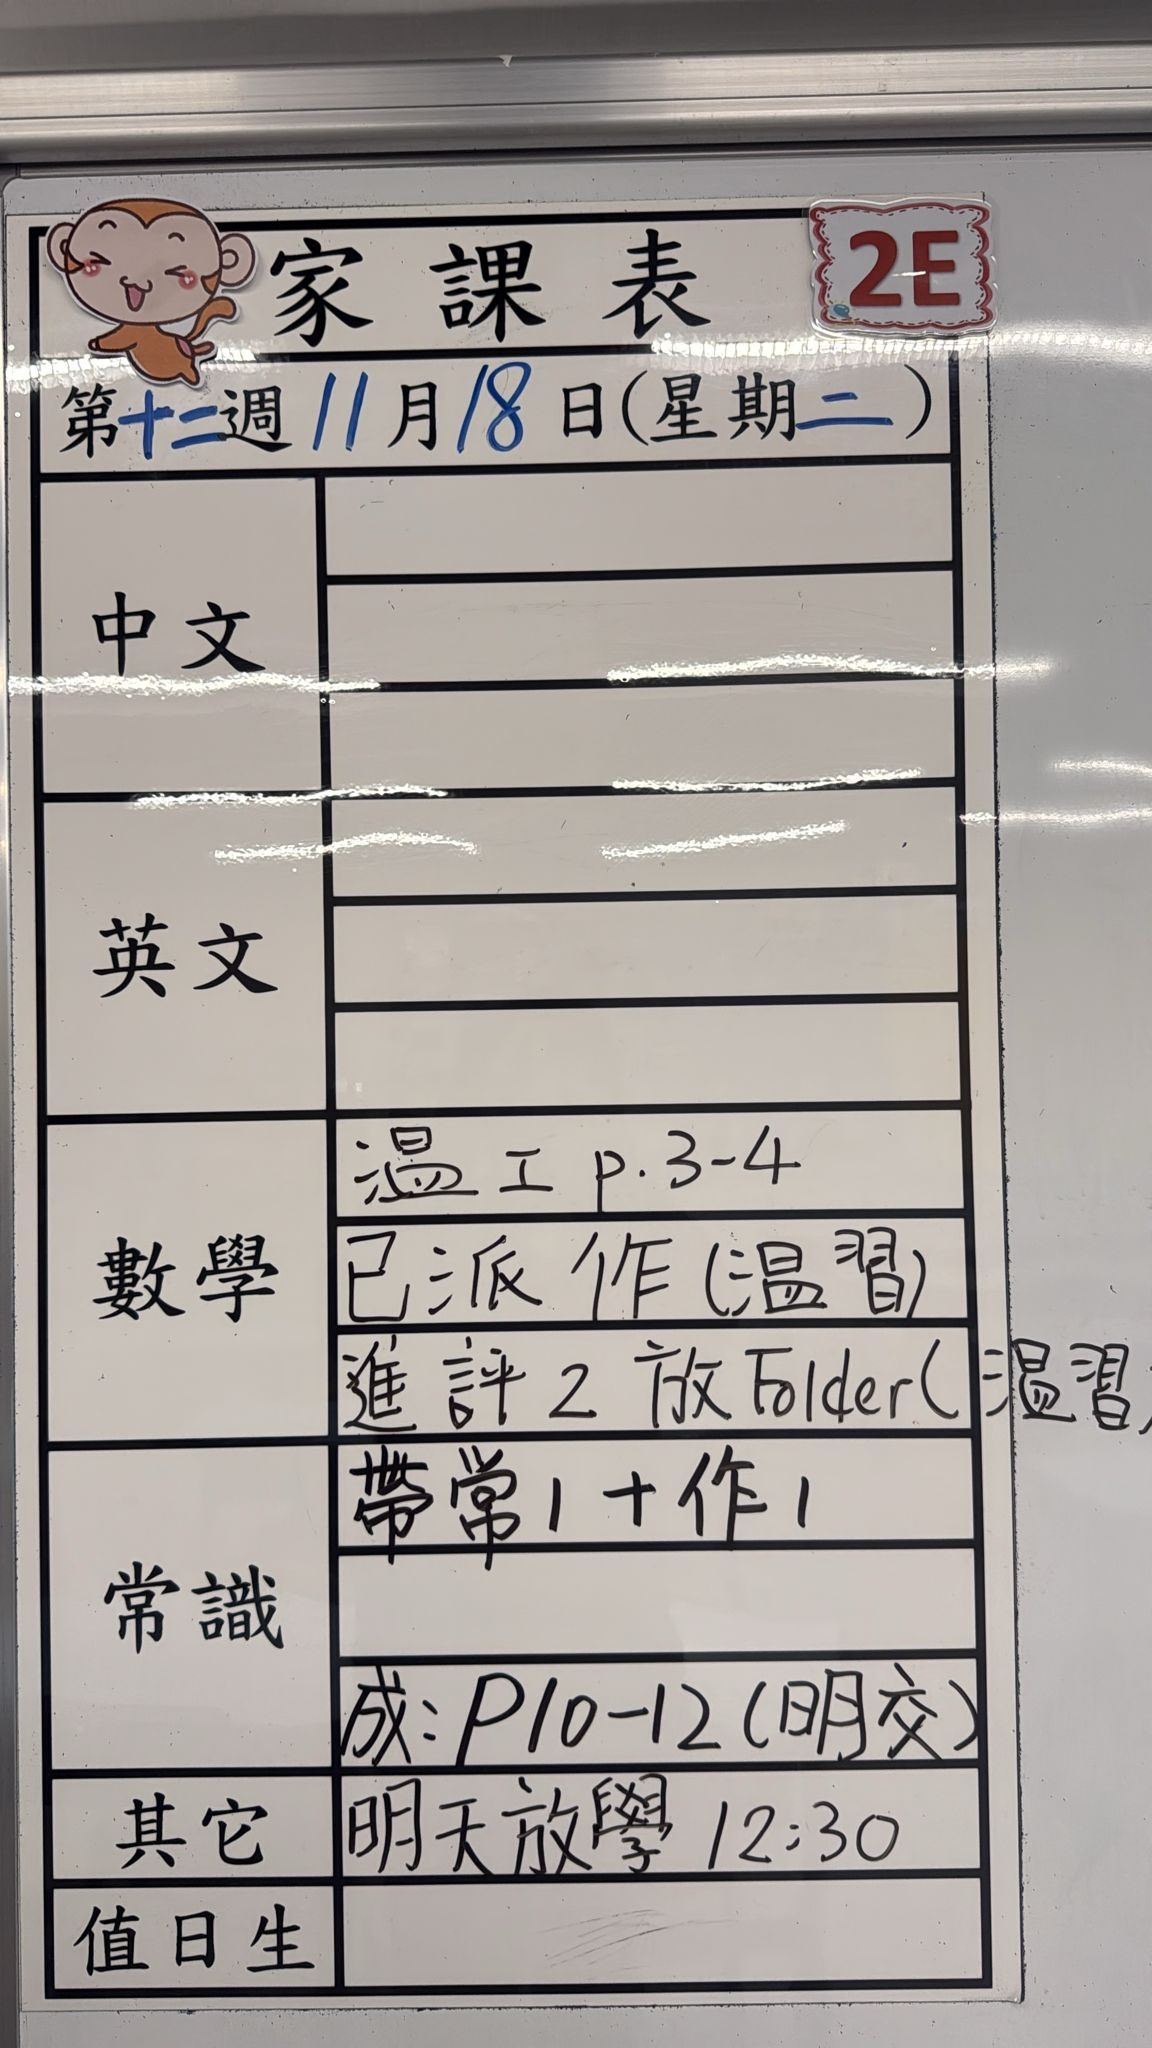 家課表 2E
第十二週11月18日(星期二)
中文
英文
數學
温工 p.3-4
已派 作(温習)
進評2 放Folder(温習)
常識
帶常1+作1
成:P10-12(明交)
其它
明天放學 12:30
值日生